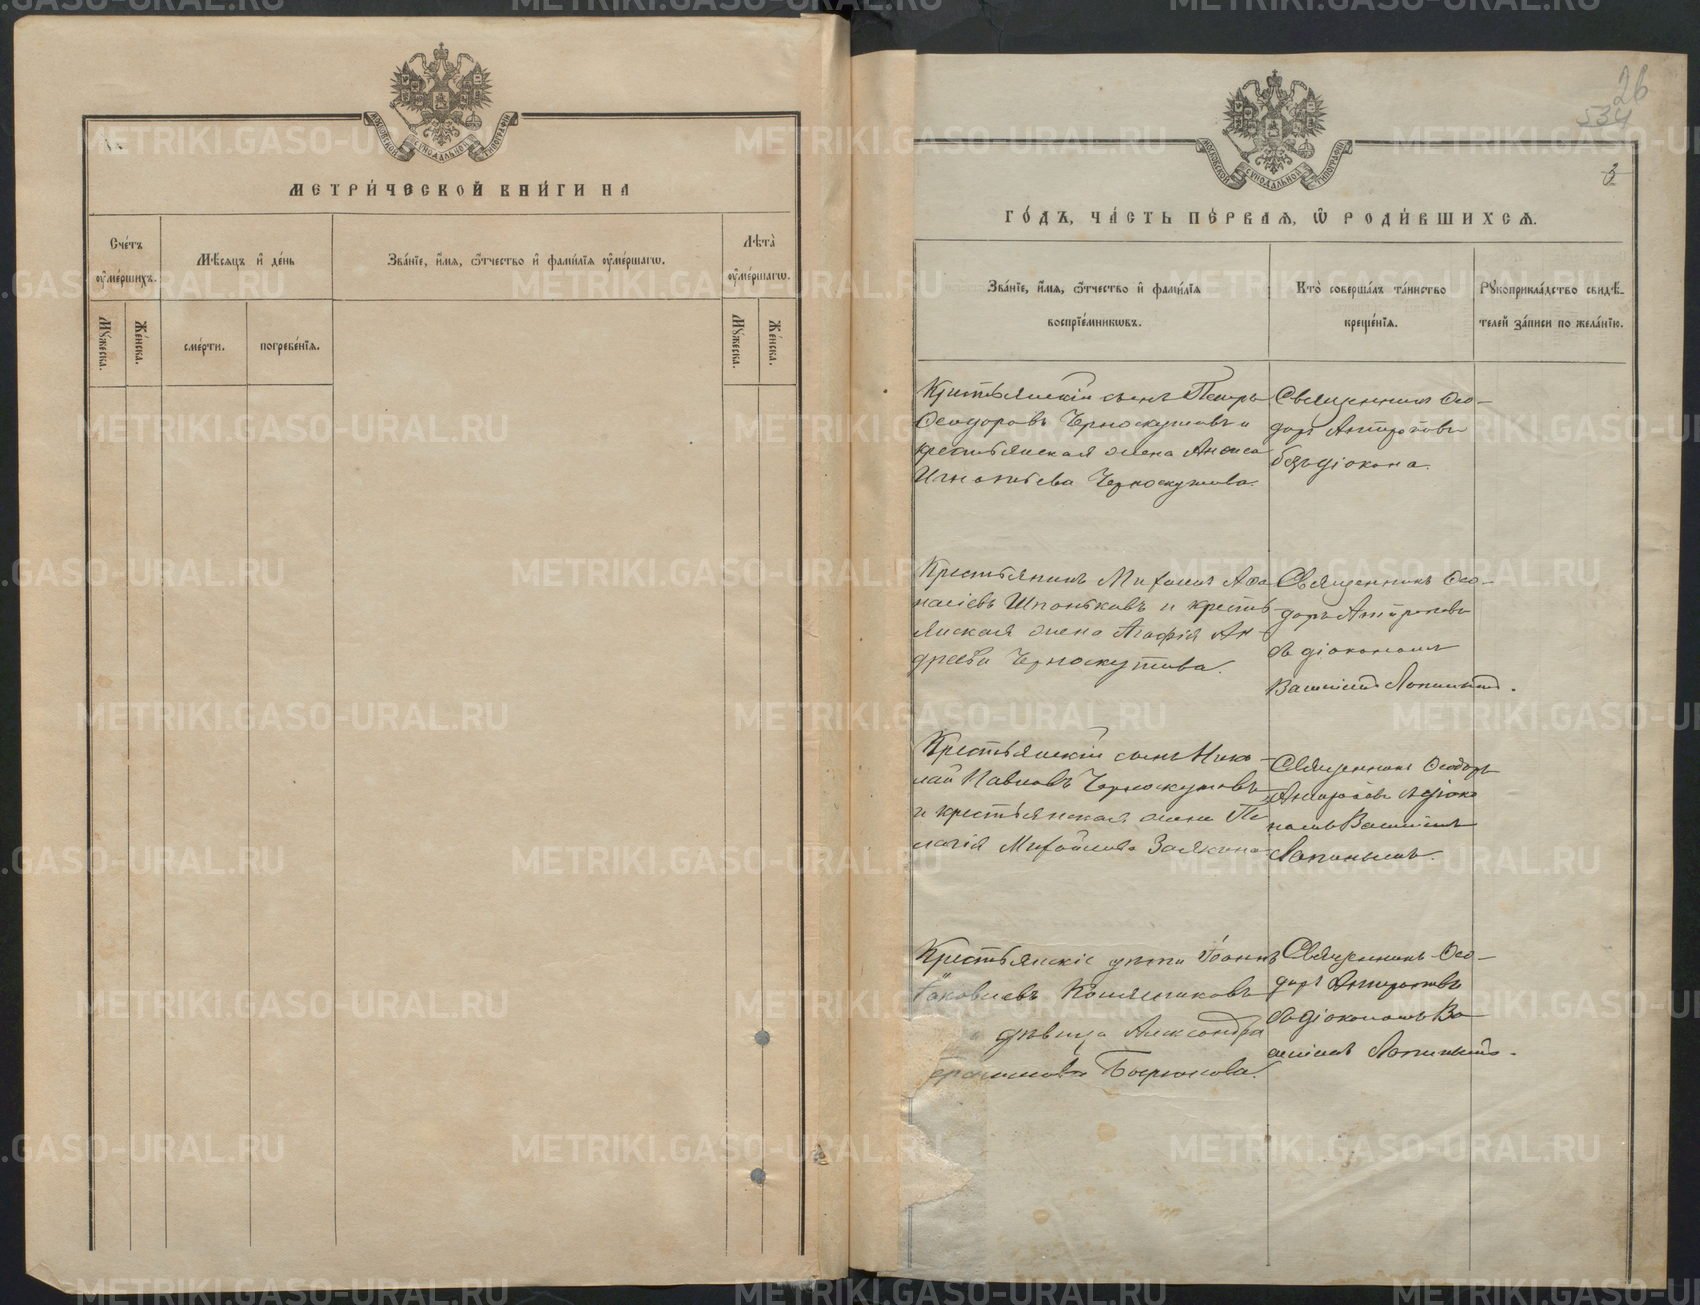 МОСКОВСКОЙ СѴНОДАЛЬНОЙ ТИПОГРАФІИ
МЕТРИ́ЧЕСКОЙ КНИ́ГИ НА
Сче́тъ
оу҆ме́ршихъ.
Мꙋ́жеска.
Же́нска.
Мѣ́сяцъ и҆ де́нь
сме́рти.
погребе́нїѧ.
Зва́нїе, и҆́мѧ, ѻ҆́тчество и҆ фами́лїѧ оу҆ме́ршагѡ.
Лѣ́та
оу҆ме́ршагѡ.
Мꙋ́жеска.
Же́нска.
26
534
3
МОСКОВСКОЙ СѴНОДАЛЬНОЙ ТИПОГРАФІИ
ГО́ДЪ, ЧА́СТЬ ПЕ́РВАѦ, Ѡ҆ РОДИ́ВШИХСѦ.
Зва́нїе, и҆́мѧ, ѻ҆́тчество и҆ фами́лїѧ
воспрїе́мникѡвъ.
Кто̀ соверша́лъ та́инство
креще́нїѧ.
Рꙋкоприкла́дство свидѣ́-
телей за́писи по жела́нїю.
Крестьянскій сынъ Петръ
Ѳеодоровъ Черноскутовъ и
крестьянская жена Аниса
Игнатьева Черноскутова.
Священникъ Ѳео-
доръ Антроповъ
безъ діакона.
Крестьянинъ Михаилъ Аѳа
насіевъ Шпоньковъ и кресть-
янская жена Агафія Ан-
дреева Черноскутова.
Священникъ Ѳео-
доръ Антроповъ
съ діакономъ
Василіемъ Лапинымъ.
Крестьянскій сынъ Нико-
лай Павловъ Черноскутовъ
и крестьянская жена Пе
лагія Михайлова Заякина
Священникъ Ѳеодоръ
Антроповъ съ діако
номъ Василіемъ
Лапинымъ.
Крестьянскіе дѣти Іоаннъ
Іаковлевъ
дѣвица Александра
Священникъ Ѳео-
доръ Антроповъ
съ діакономъ Ва
силіемъ Лапинымъ.
METRIKI.GASO-URAL.RU